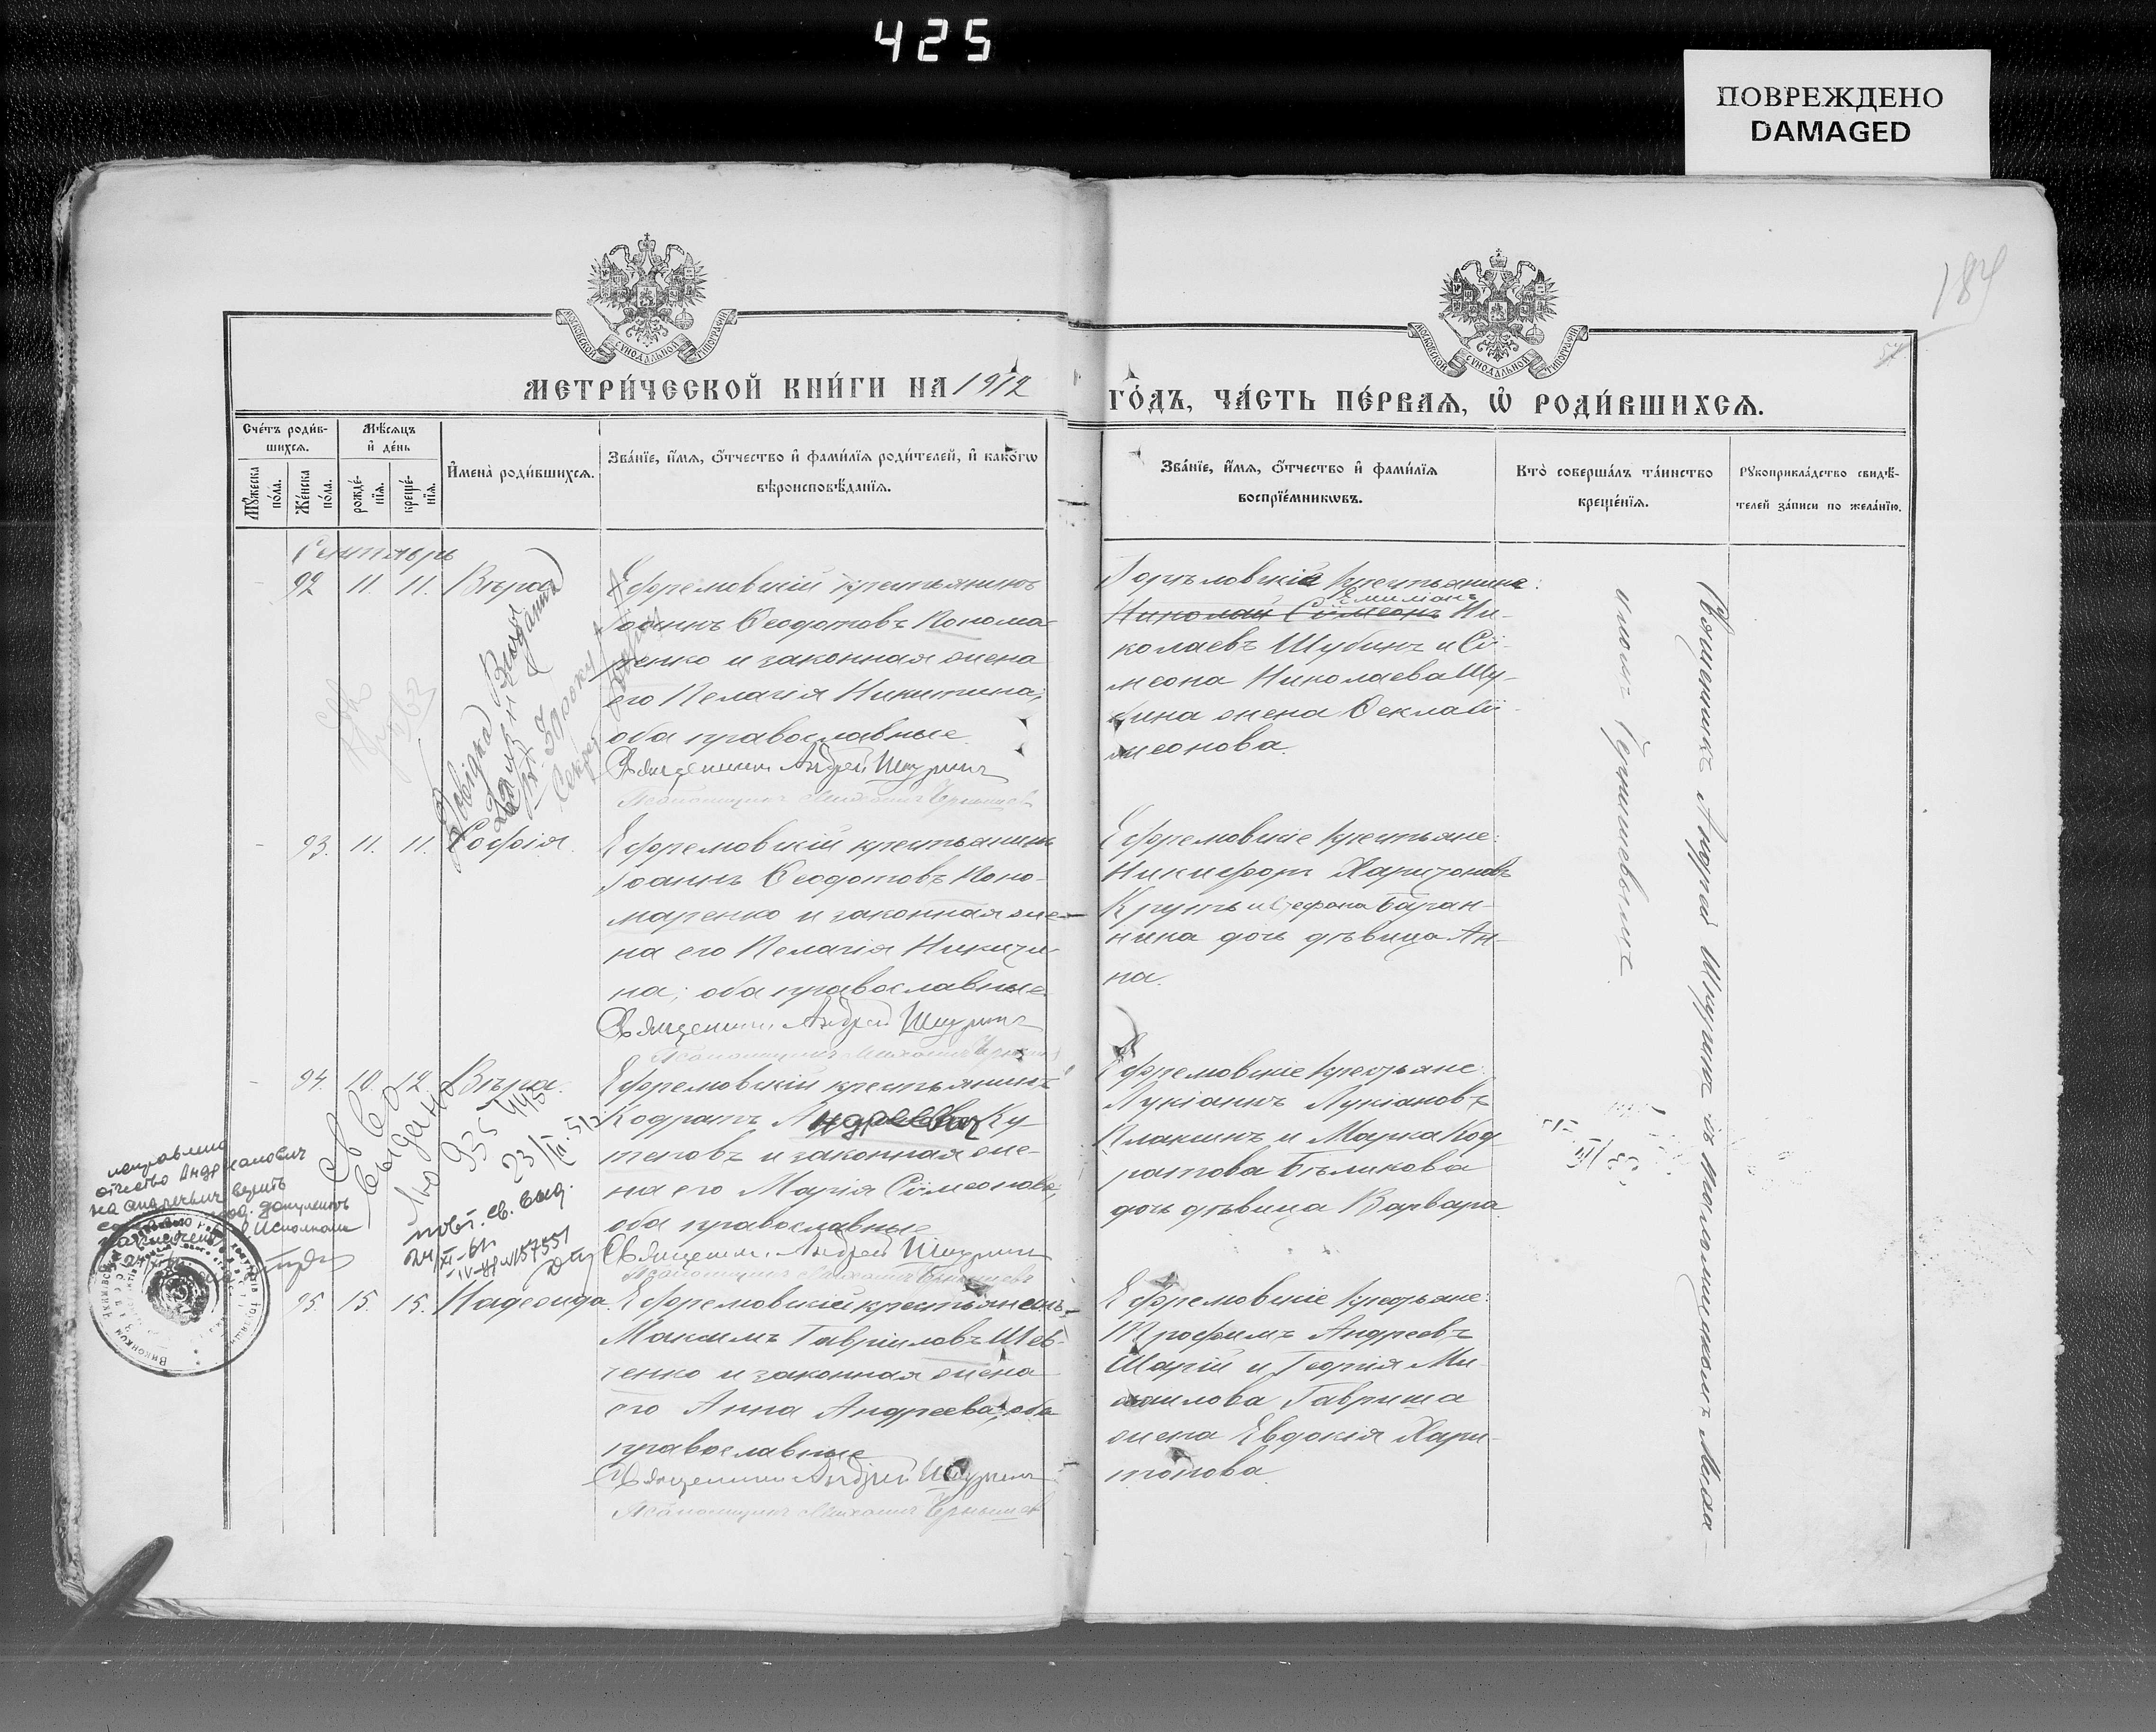 425
ПОВРЕЖДЕНО
DAMAGED
184
МОСКОВСКОЙ СѴНОДАЛЬНОЙ ТИПОГРАФІИ
МОСКОВСКОЙ СѴНОДАЛЬНОЙ ТИПОГРАФІИ
МЕТРИ́ЧЕСКОЙ КНИ́ГИ НА 1912
ГО́ДЪ, ЧА́СТЬ ПЕ́РВАѦ, Ѡ҆ РОДИ́ВШИХСѦ.
Сче́тъ роди́в-
шихсѧ.
Мѣ́сѧцъ
и҆ де́нь
Мꙋ́жеска
по́ла.
Же́нска
по́ла.
рожде́-
нїѧ.
креще́-
нїѧ.
И҆мена̀ роди́вшихсѧ.
Зва́нїе, и҆́мѧ, ѻ҆́тчество и҆ фами́лїѧ роди́телей, и҆ како́гѡ
вѣроисповѣ́данїѧ.
Зва́нїе, и҆́мѧ, ѻ҆́тчество и҆ фами́лїѧ
воспрїе́мникѡвъ.
Кто̀ соверша́лъ та́инство
креще́нїѧ.
Рꙋкоприкла́дство свидѣ́-
телей за́писи по жела́нїю.
Сентябрь
92 11. 11. Вѣра
Ефремовскій крестьянинъ
Іоаннъ Ѳеодотовъ Понома-
ренко и законная жена
его Пелагія Никитина;
оба православные.
Священникъ Андрей Шкуринъ
Псаломщикъ Михаилъ Чернышев
Горѣловскіе крестьяне:
Емиліонъ
Николай Сѵмеонъ Ни-
колаевъ Шубинъ и Сѵ-
меона Николаева Шу-
бина жена Ѳекла Сѵ-
меонова.
93. 11. 11. Софія.
Ефремовскій крестьянинъ
Іоаннъ Ѳеодотовъ Поно-
маренко и законная же-
на его Пелагія Никити-
на; оба православные
Священникъ Андрей Шкуринъ
Псаломщикъ Михаилъ Чернышев
Ефремовскіе крестьяне:
Никифоръ Харитоновъ
Круть и Стефана Баган-
нина дочь дѣвица Ан-
на.
94. 10. 12. Вѣра.
Ефремовскій крестьянинъ
Кодратъ Андреевич Ку
теповъ и законная же-
на его Марія Сѵмеонова;
оба православные
Священник Андрей Шкурин
Псаломщикъ Михаилъ Чернышевъ
Ефремовскіе крестьяне:
Лукіанъ Лукіановъ
Плакшинъ и Марка Код
ратова Бѣликова
дочь дѣвица Варвара
95 15. 15. Надежда.
Ефремовскій крестьянинъ
Максимъ Гавріиловъ Шев-
ченко и законная жена
его Анна Андреева; оба
православные
Священник Андрей Шкуринъ
Псаломщикъ Михаилъ Чернышев
Ефремовскіе крестьяне:
Трофимъ Андреевъ
Шагій и Георгія Ми-
хаилова Гавриша
жена Евдокія Хари-
тонова.
Священникъ Андрей Шкуринъ съ псаломщикомъ Миха-
иломъ Чернышевымъ
Довідка Видана
исправлено
отчество Андрианович
на андреевич
Св во
выдано
935
повт. св. выд.